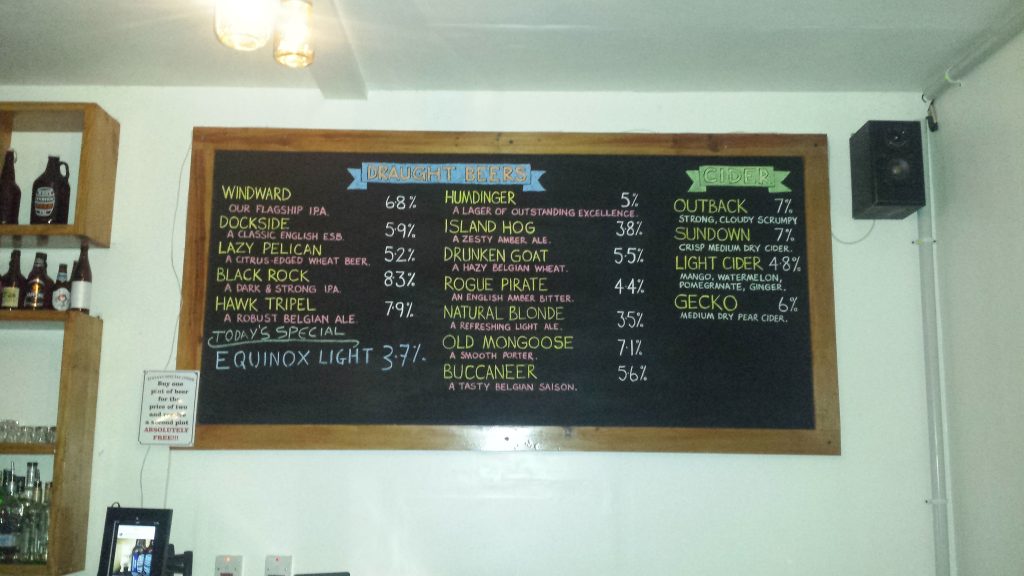 DRAUGHT BEERS
WINDWARD 6.8%
OUR FLAGSHIP I.P.A.
DOCKSIDE 5.9%
A CLASSIC ENGLISH ESB.
LAZY PELICAN 5.2%
A CITRUS-EDGED WHEAT BEER.
BLACK ROCK 8.3%
A DARK & STRONG IPA.
HAWK TRIPEL 7.9%
A ROBUST BELGIAN ALE.
TODAY'S SPECIAL
EQUINOX LIGHT 3.7%
HUMDINGER 5%
A LAGER OF OUTSTANDING EXCELLENCE.
ISLAND HOG 3.8%
A ZESTY AMBER ALE.
DRUNKEN GOAT 5.5%
A HAZY BELGIAN WHEAT.
ROGUE PIRATE 4.4%
AN ENGLISH AMBER BITTER.
NATURAL BLONDE 3.5%
A REFRESHING LIGHT ALE.
OLD MONGOOSE 7.1%
A SMOOTH PORTER.
BUCCANEER 5.6%
A TASTY BELGIAN SAISON.
CIDER
OUTBACK 7%
STRONG, CLOUDY SCRUMPY
SUNDOWN 7%
CRISP MEDIUM DRY CIDER.
LIGHT CIDER 4.8%
MANGO, WATERMELON,
POMEGRANATE, GINGER.
GECKO 6%
MEDIUM DRY PEAR CIDER.
Buy one
pint of beer
for the
price of two
and receive
a second pint
ABSOLUTELY
FREE!!!